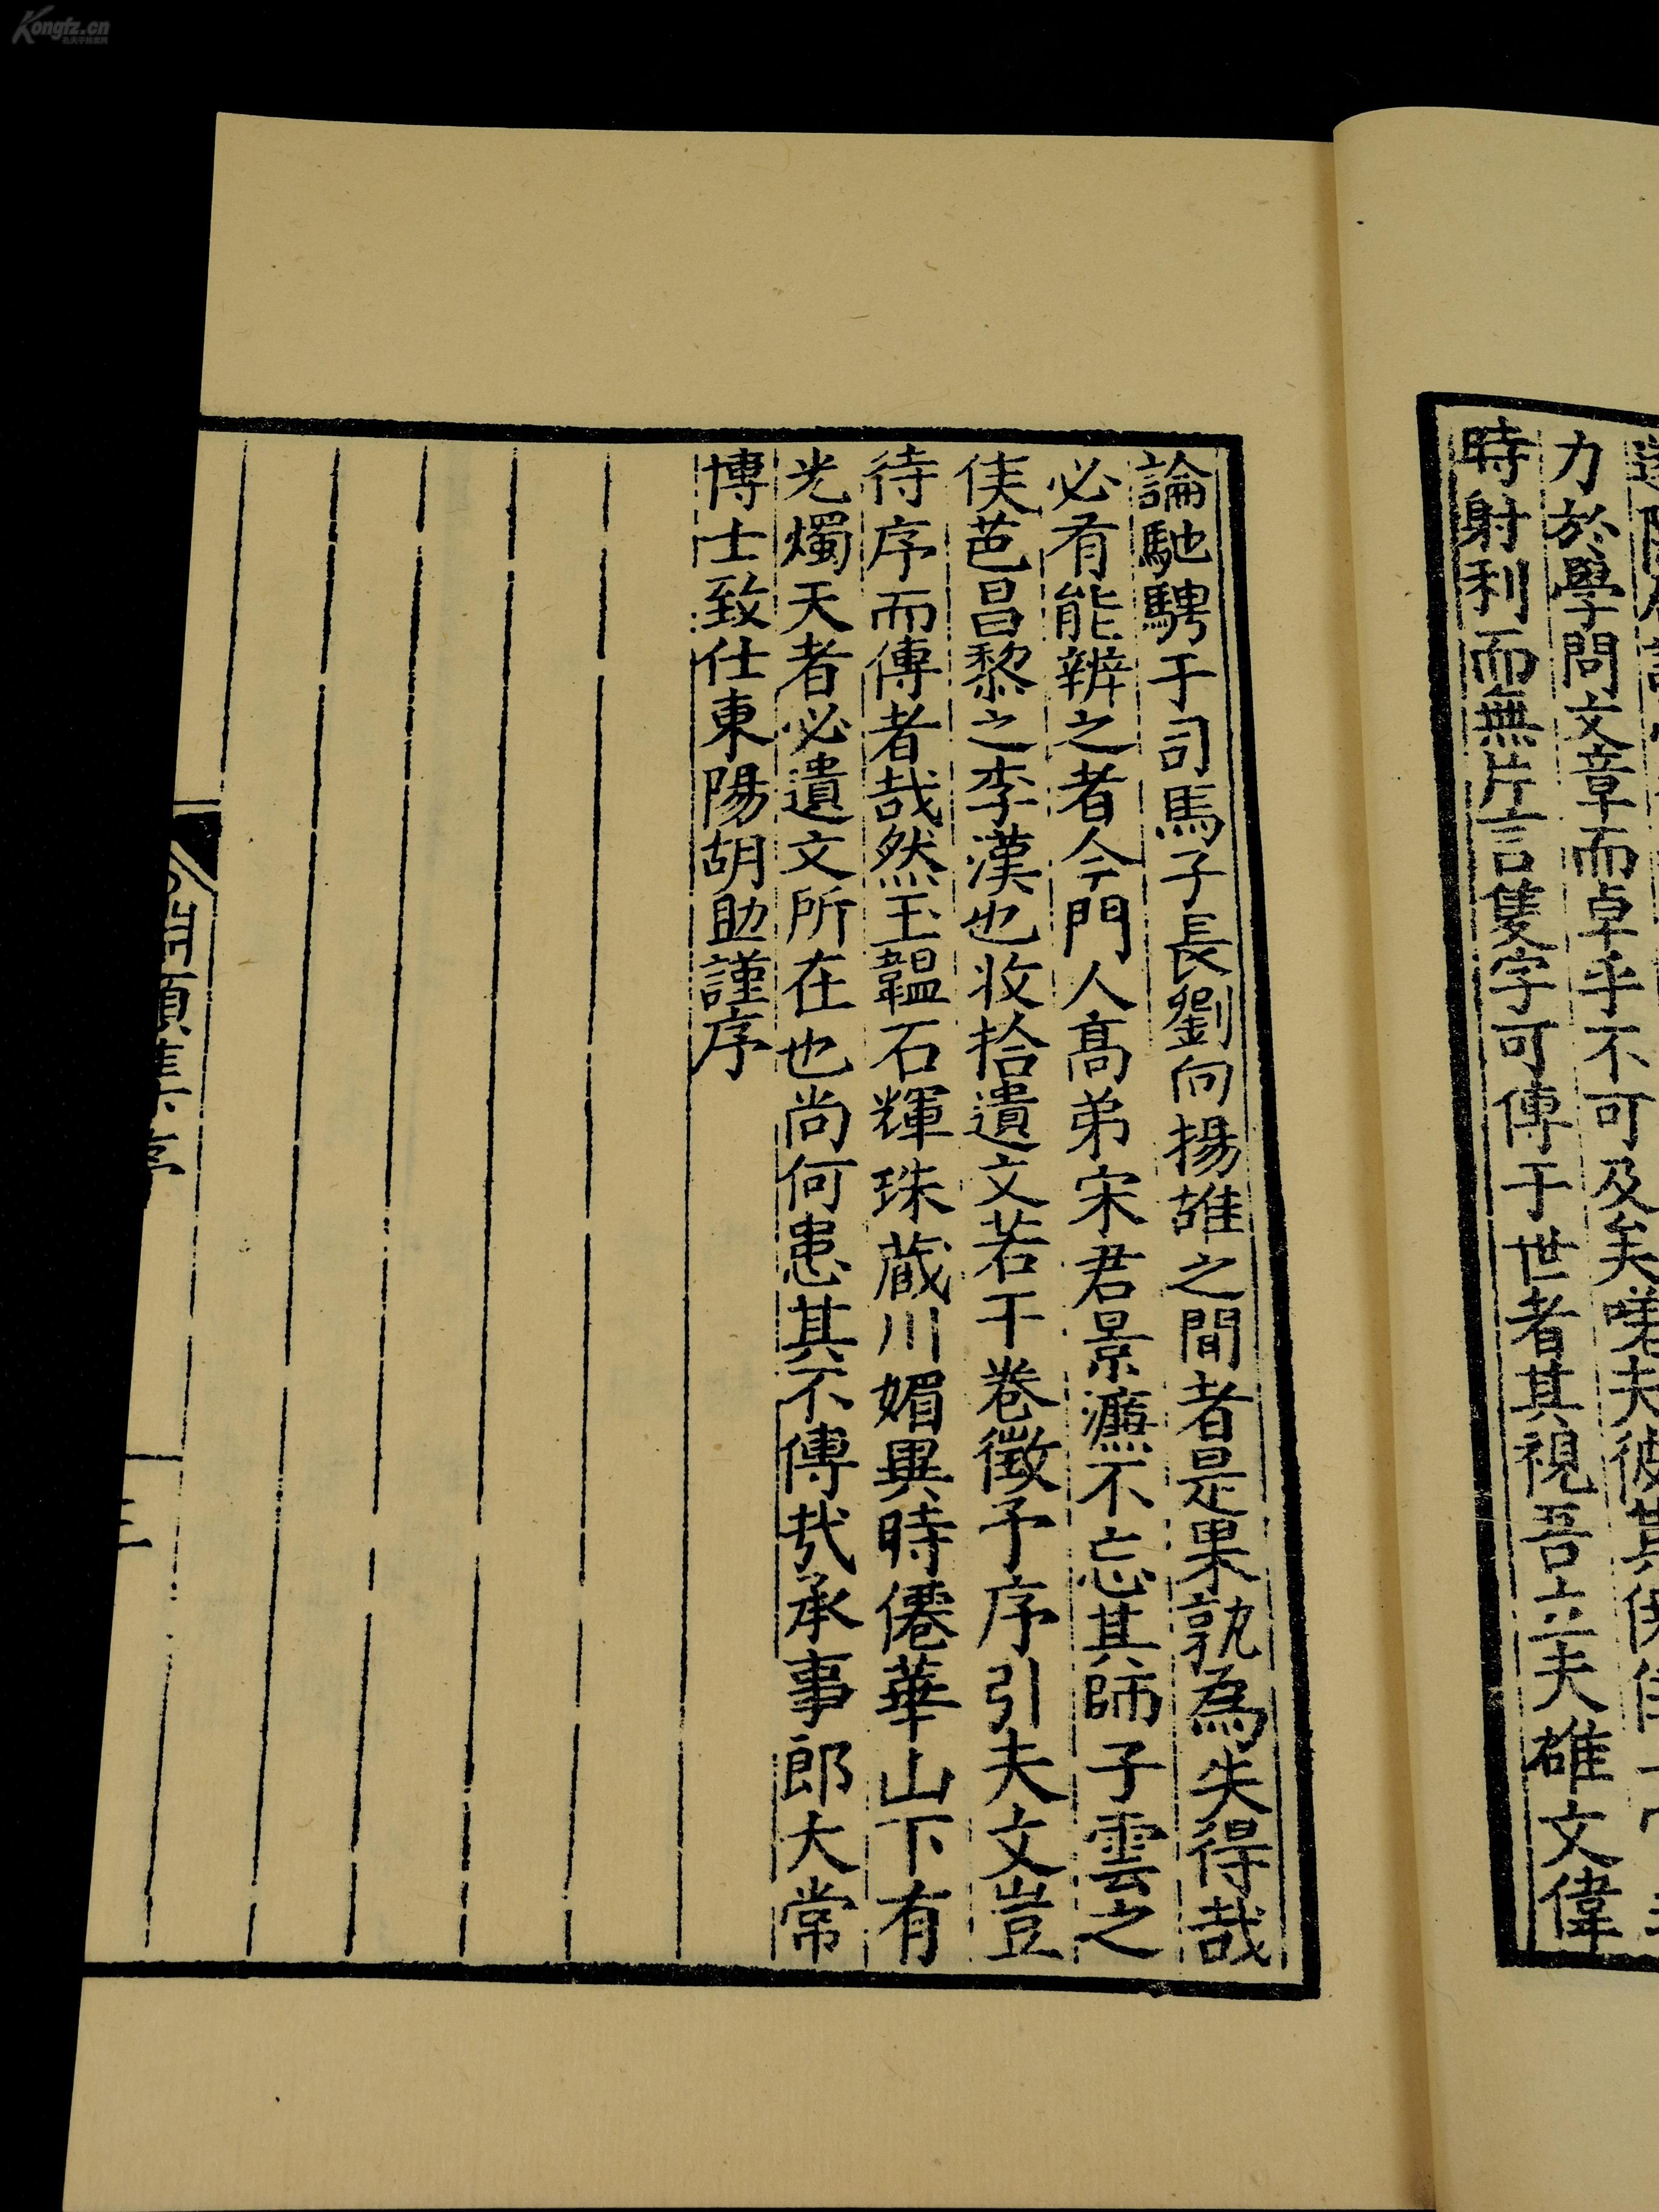 力於學問文章而卓乎不可及矣嗟夫彼其
時射利而無片言隻字可傳于世者其視吾立夫雄文偉
論馳騁于司馬子長劉向揚雄之間者是果孰為失得哉
必有能辨之者今門人高弟宋君景濂不忘其師子雲之
侯芭昌黎之李漢也收拾遺文若干卷徵予序引夫文豈
待序而傳者哉然玉韞石輝珠蔵川媚異時僊華山下有
光燭天者必遺文所在也尚何患其不傳㢤承事郎大常
博士致仕東陽胡助謹序
淵頴集序
三
Kongfz.cn